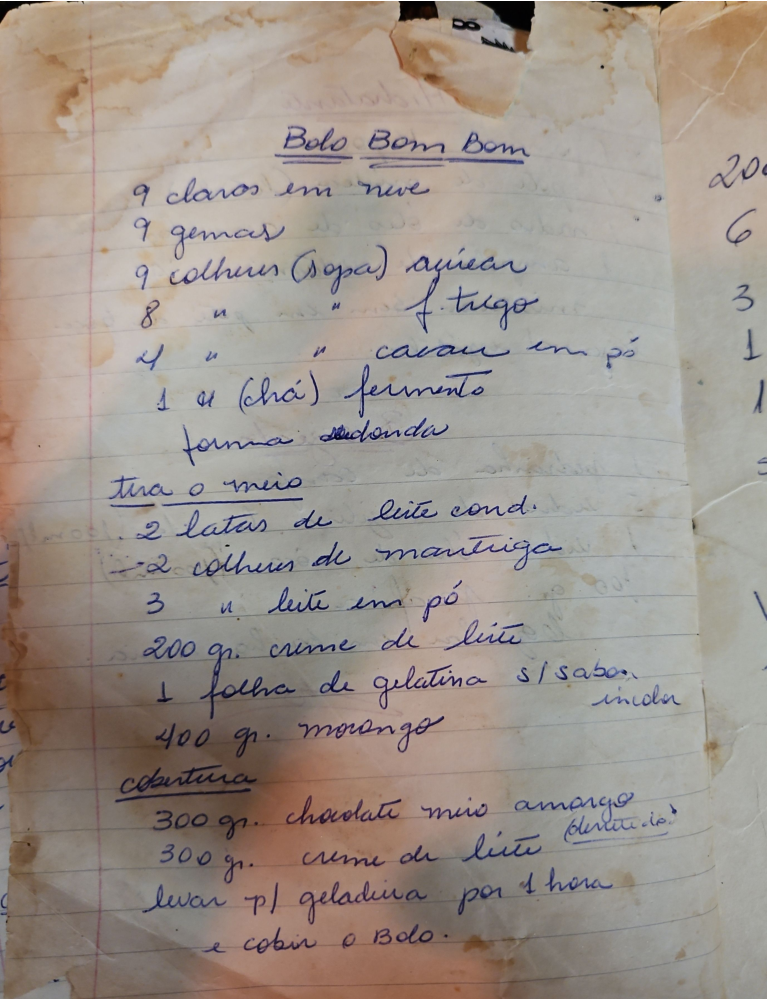 Bolo Bom Bom
9 claras em neve
9 gemas
9 colheres (sopa) açúcar
8 " " f. trigo
4 " " cacau em pó
1 " (chá) fermento
forma redonda
tira o meio
. 2 latas de leite cond.
- 2 colheres de manteiga
3 " leite em pó
200 gr. creme de leite
1 folha de gelatina s/ sabor
incolor
400 gr. morango
cobertura
300 gr. chocolate meio amargo
(derretido)
300 gr. creme de leite
levar p/ geladeira por 1 hora
e cobrir o Bolo.
200
6
3
1
1